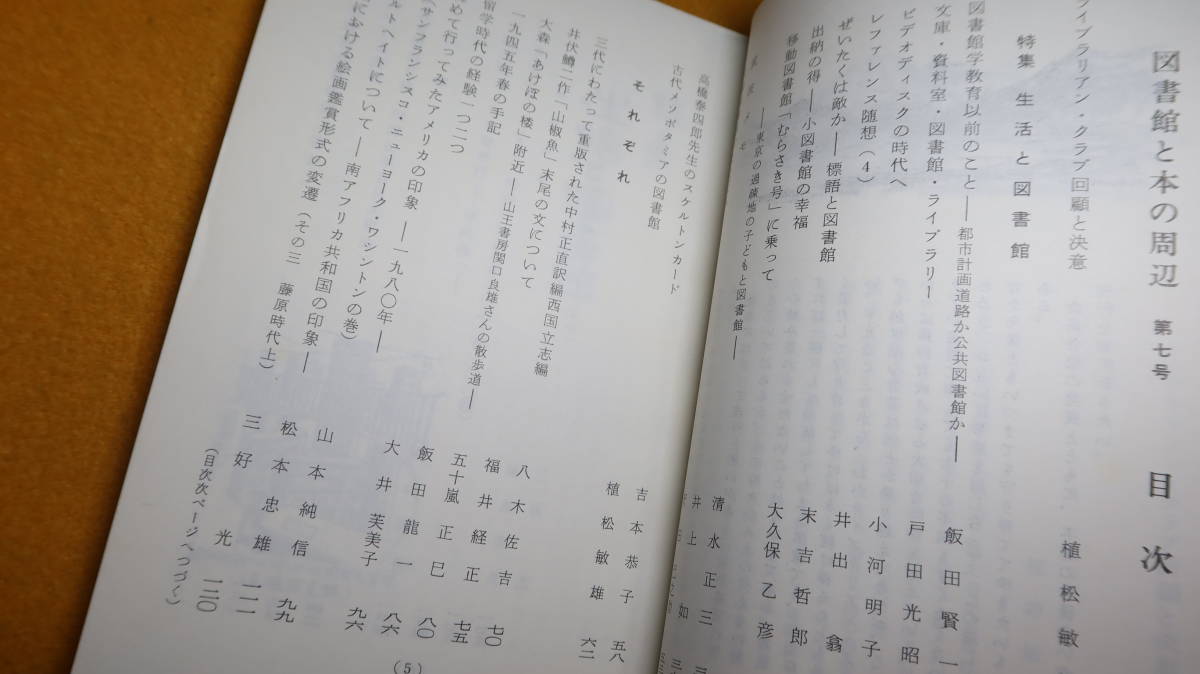 図書館と本の周辺 第七号 目次
ライブラリアン・クラブ回顧と決意 植松敏
特集 生活と図書館
図書館学教育以前のこと――都市計画道路か公共図書館か―― 飯田賢一
文庫・資料室・図書館・ライブラリー 戸田光昭
ビデオディスクの時代へ 小河明子
レファレンス随想(4) 井出翕
ぜいたくは敵か――標語と図書館 末吉哲郎
出納の得――小図書館の幸福 大久保乙彦
移動図書館「むらさき号」に乗って
――東京の過疎地の子どもと図書館―― 清水正三
井上如
高橋泰四郎先生のスケルトンカード 吉本恭子 五八
古代メソポタミアの図書館 植松敏雄 六二
それぞれ
三代にわたって重版された中村正直訳編西国立志編 八木佐吉 七〇
井伏鱒二作「山椒魚」末尾の文について 福井経正 七五
大森「あけぼの楼」附近――山王書房関口良雄さんの散歩道―― 五十嵐正巳 八〇
一九四五年春の手記 飯田龍一 八六
留学時代の経験一つ二つ 大井芙美子 九六
めて行ってみたアメリカの印象――一九八〇年――
(サンフランシスコ・ニューヨーク・ワシントンの巻) 山本純信 九九
ルトヘイトについて――南アフリカ共和国の印象―― 松本忠雄 一一一
における絵画鑑賞形式の変遷(その三 藤原時代上) 三好光 一二〇
(目次次ページへつづく)
(5)